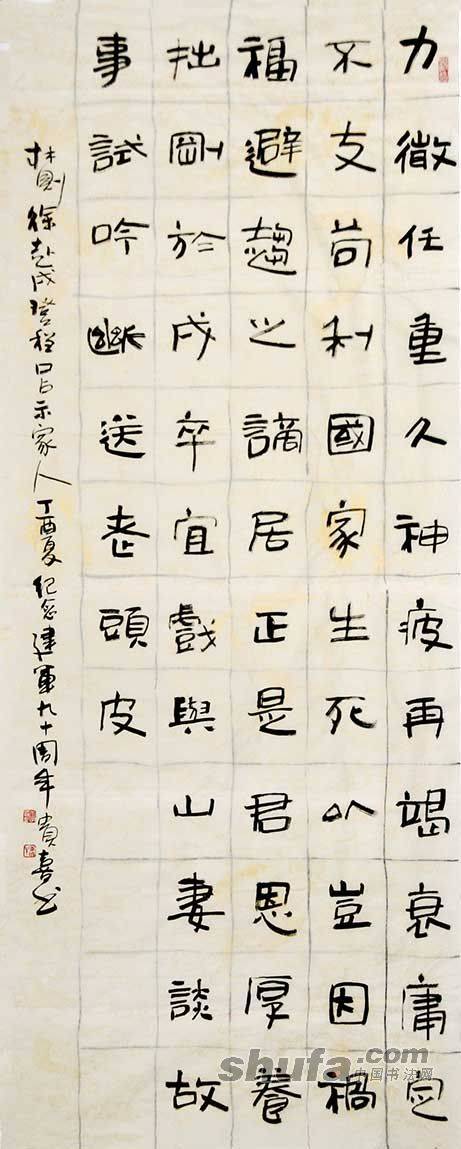 力微任重久神疲再竭衰庸定
不支苟利國家生死以豈因禍
福避趨之謫居正是君恩厚養
拙剛於戍卒宜戲與山妻談故
事試吟斷送老頭皮
林則徐赴戍登程口占示家人 丁酉夏 纪念建軍九十周年 貴喜书
shufa.com
中国书法网